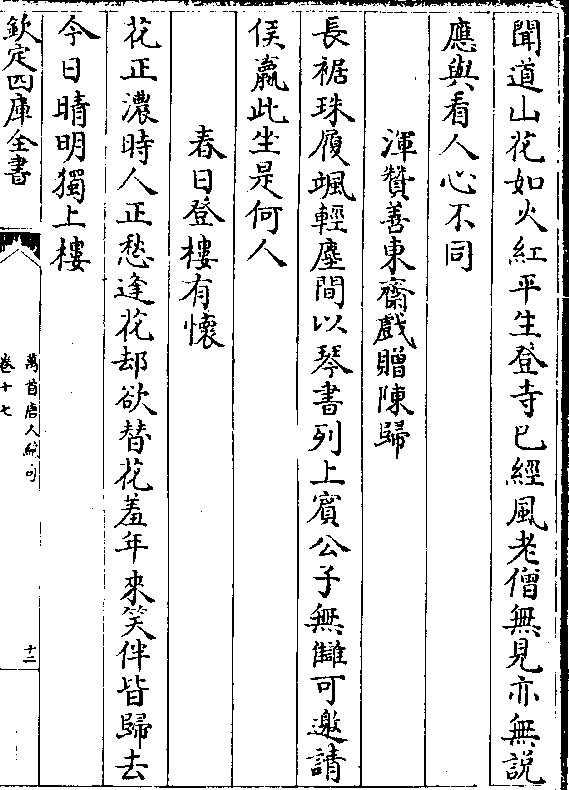 聞道山花如火紅平生登寺已經風老僧無見亦無説
應與看人心不同
渾贊善東齋戲贈陳歸
長裾珠履颯輕塵間以琴書列上賓公子無讎可邀請
侯嬴此坐是何人
春日登樓有懷
花正濃時人正愁逢花却欲替花羞年來笑伴皆歸去
今日晴明獨上樓
欽定四庫全書
萬首唐人絶句
卷十七
十二